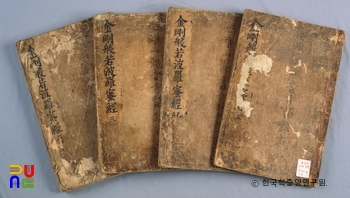 金剛般若波羅蜜經
金剛般若波羅蜜經
金剛般若波羅蜜經
金剛般
ⓒ한국학중앙연구원.